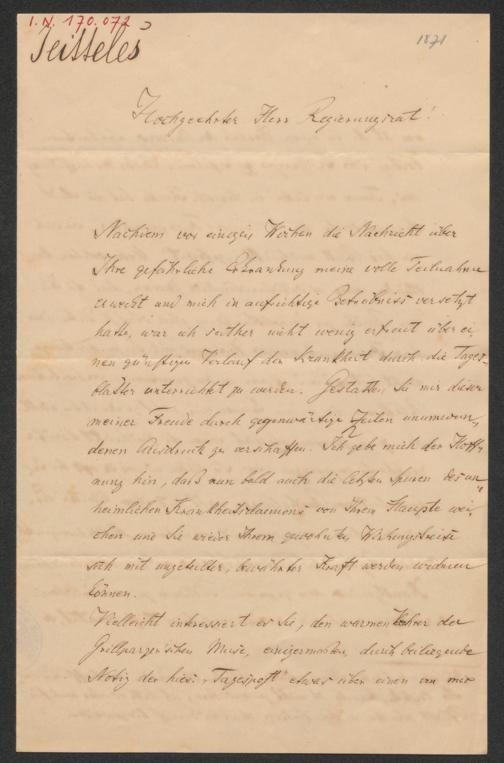 I.N. 170.072
Jeitteles
1871
Hochgeehrter Herr Regierungsrat!
Nachdem vor einigen Wochen die Nachricht über
Ihre gefährliche Erkrankung meine volle Teilnahme
erweckt und mich in aufrichtige Betrübniss versetzt
hatte, war ich seither nicht wenig erfreut über ei-
nen günstigen Verlauf der Krankheit durch die Tages-
blätter unterrichtet zu werden. Gestatten Sie mir dieser
meiner Freude durch gegenwärtige Zeilen unumwun-
denen Ausdruck zu verschaffen. Ich gebe mich der Hoff-
nung hin, daß nun bald auch die letzten Spuren des un-
heimlichen Krankheitsdaemons von Ihrem Haupte wei-
chen und Sie wieder Ihrem gewohnten Wirkungskreise
sich mit ungeteilter, bewährter Kraft werden widmen
können.
Vielleicht interessiert es Sie, den warmen Verehrer der
Grillparzer'schen Muse, einigermaßen, durch beiliegende
Notiz der hies. "Tagespost" etwas über einen von mir